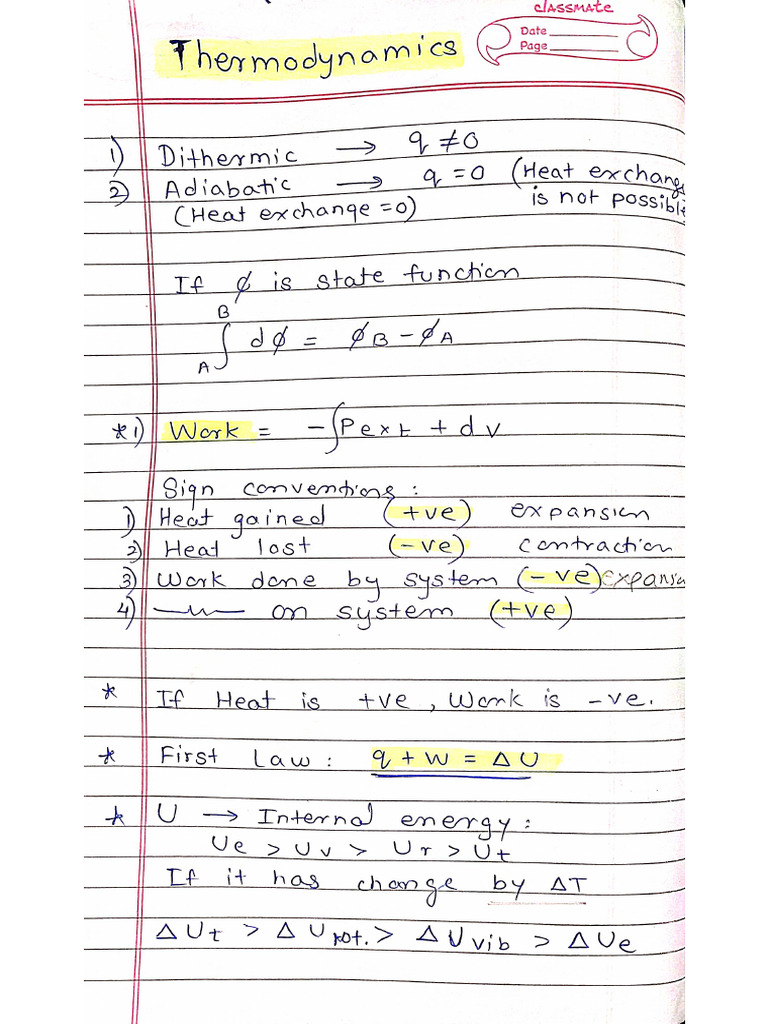 classmate
Date
Page
Thermodynamics
1) Dithermic → q ≠ 0
2) Adiabatic → q = 0 (Heat exchang
(Heat exchange = 0) is not possibl
If ϕ is state function
B
∫ dϕ = ϕB - ϕA
A
*1) Work = -∫Pext + dv
Sign conventions:
1) Heat gained (+ve) expansion
2) Heat lost (-ve) contraction
3) Work done by system (-ve) expansio
4) —〃— on system (+ve)
* If Heat is +ve, Work is -ve.
* First Law: q + w = ΔU
* U → Internal energy:
Ue > Uv > Ur > Ut
If it has change by ΔT
ΔUt > ΔUrot. > ΔUvib > ΔUe